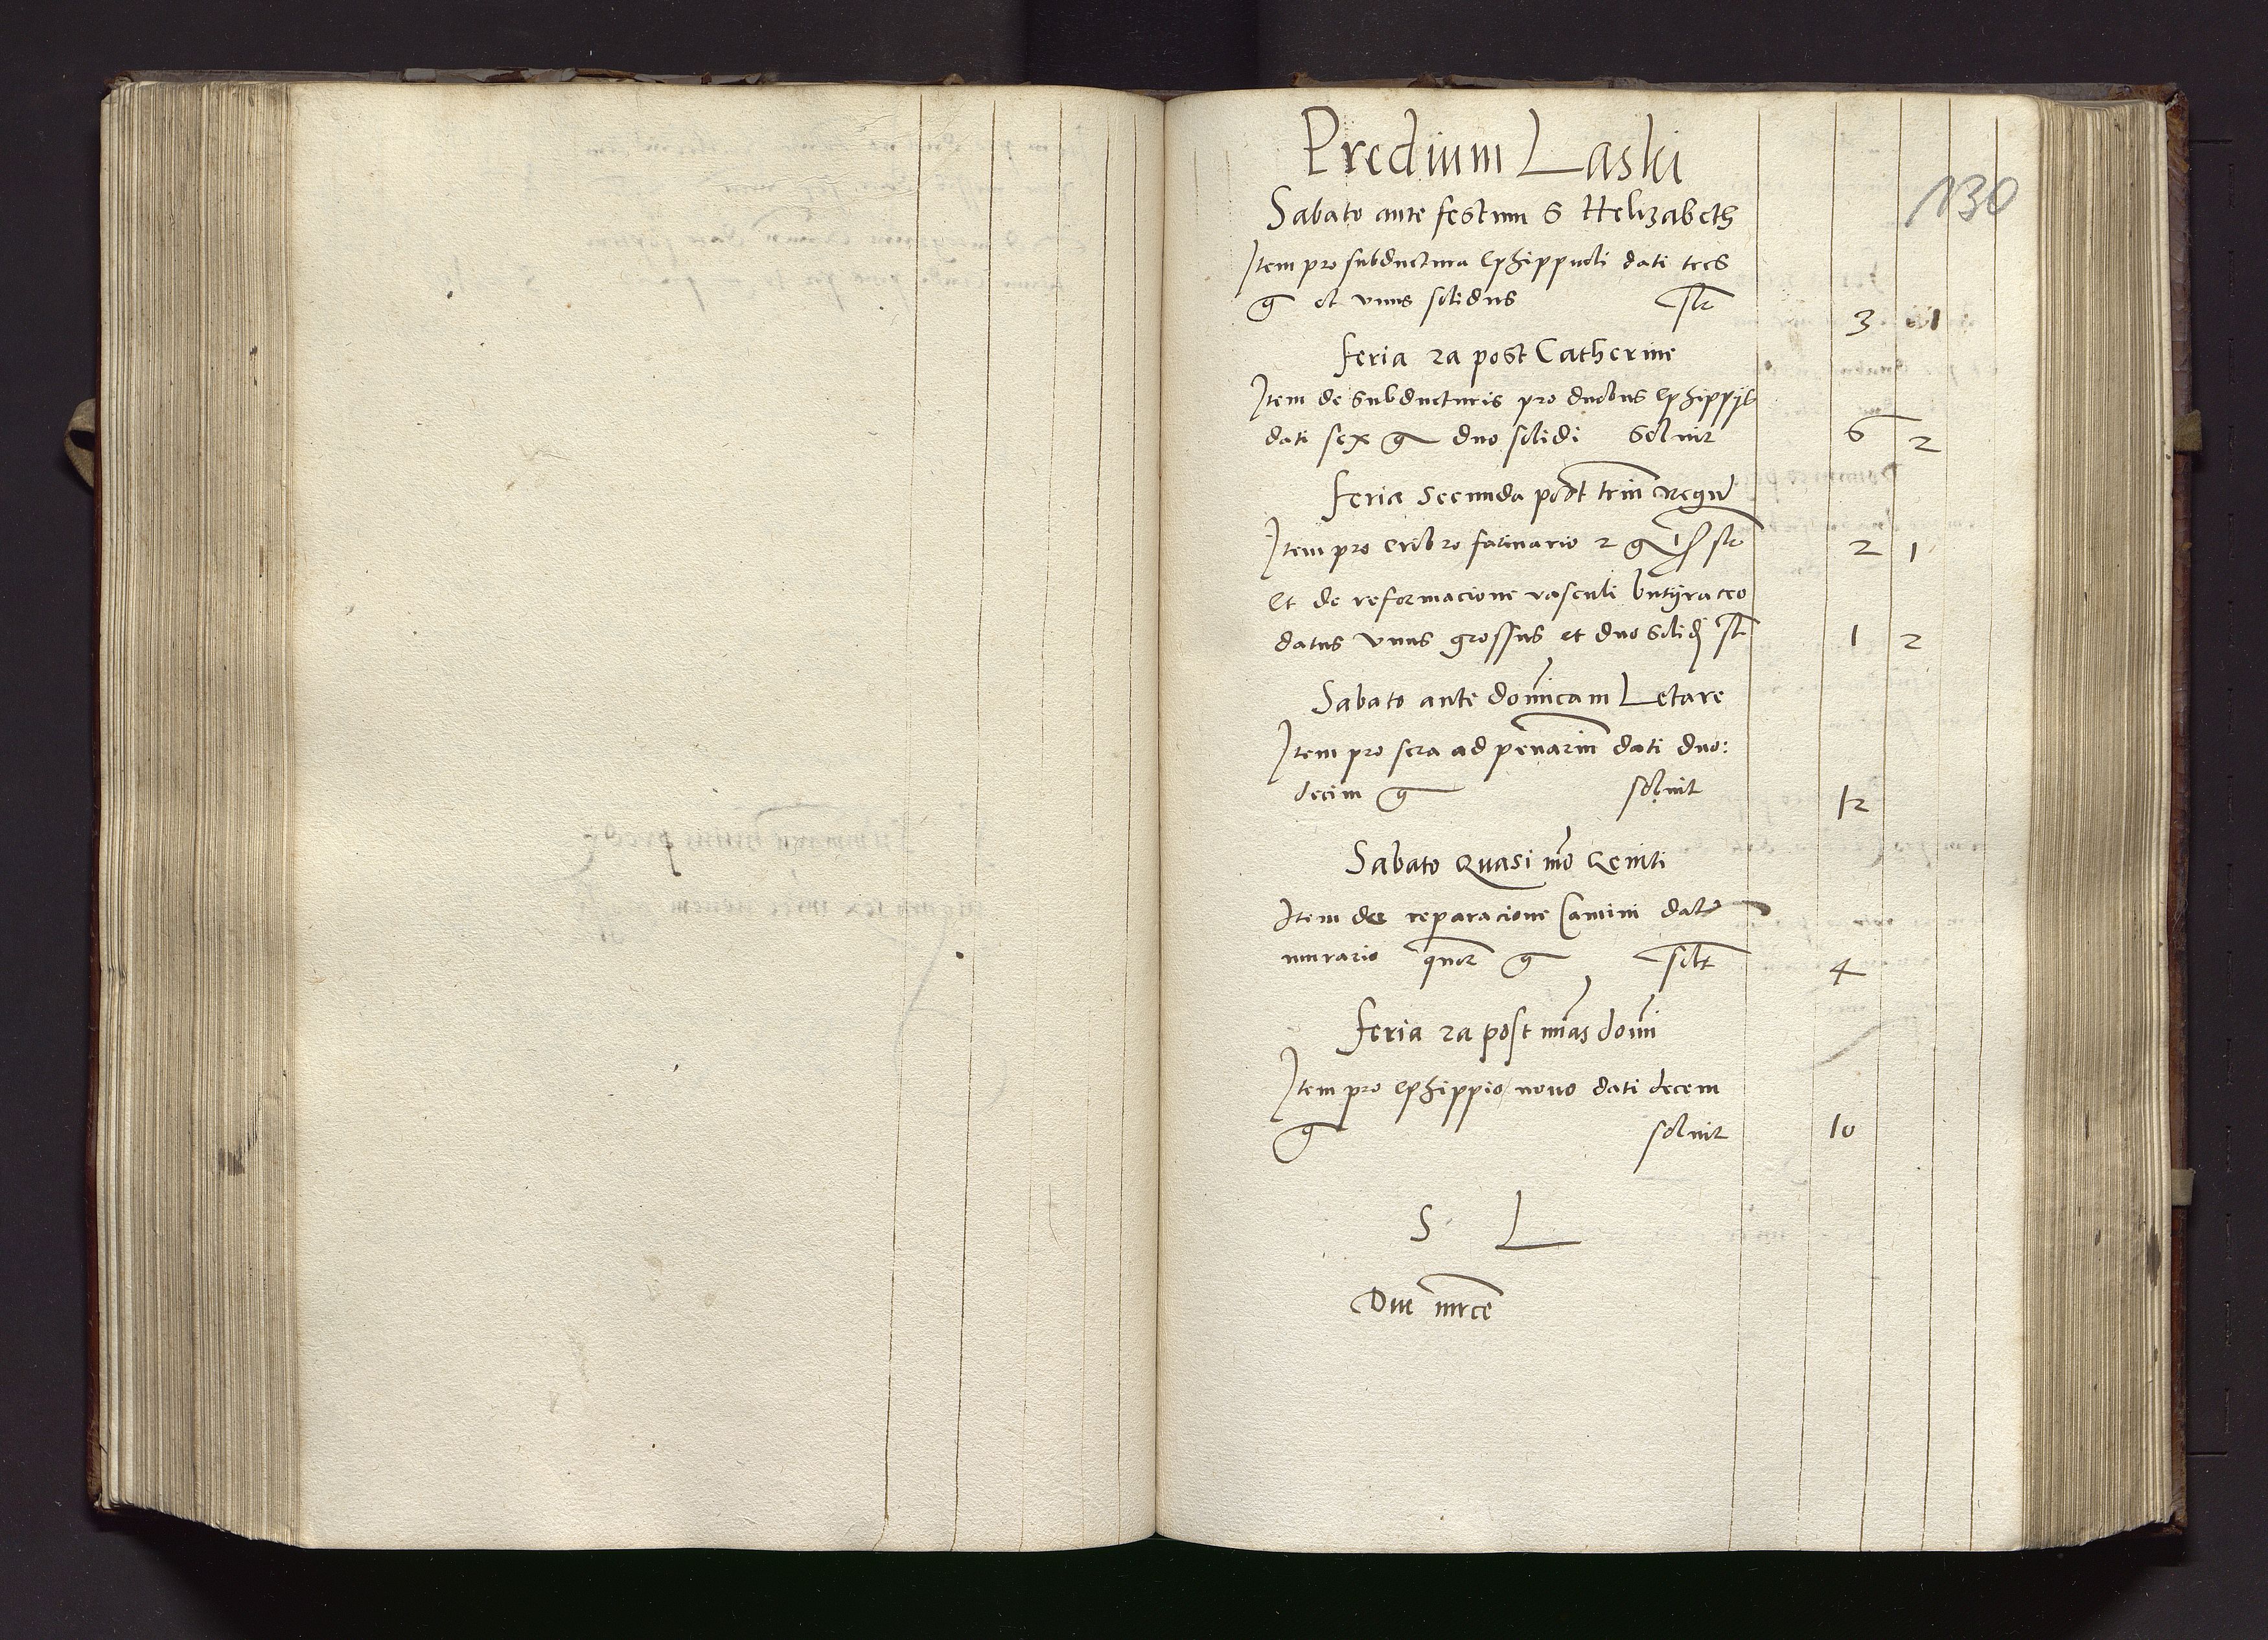 Predium Laski
130
Sabato ante festum S Helizabeth
Item pro subductura Ephippuli dati tres
g et unus solidus solt 3 1
feria 2a post Catherine
Item de subducturis pro duobus Ephippijs
dati sex g duo solidi soluit 6 2
feria secunda post trium regu
Item pro cribro farinario 2 g 1 ß solt 2 1
et de reformacione vasculi butyraceo
datus unus grossus et duo solidj solt 1 2
Sabato ante domicam Letare
Item pro sera ad penariu dati duo:
decim g soluit 12
Sabato Quasi mo Geniti
Item de reparacione Camini dati
murario quor g solt 4
feria 2a post mias domi
Item pro Ephippio novo dati decem
g soluit 10
S L
Due mrce